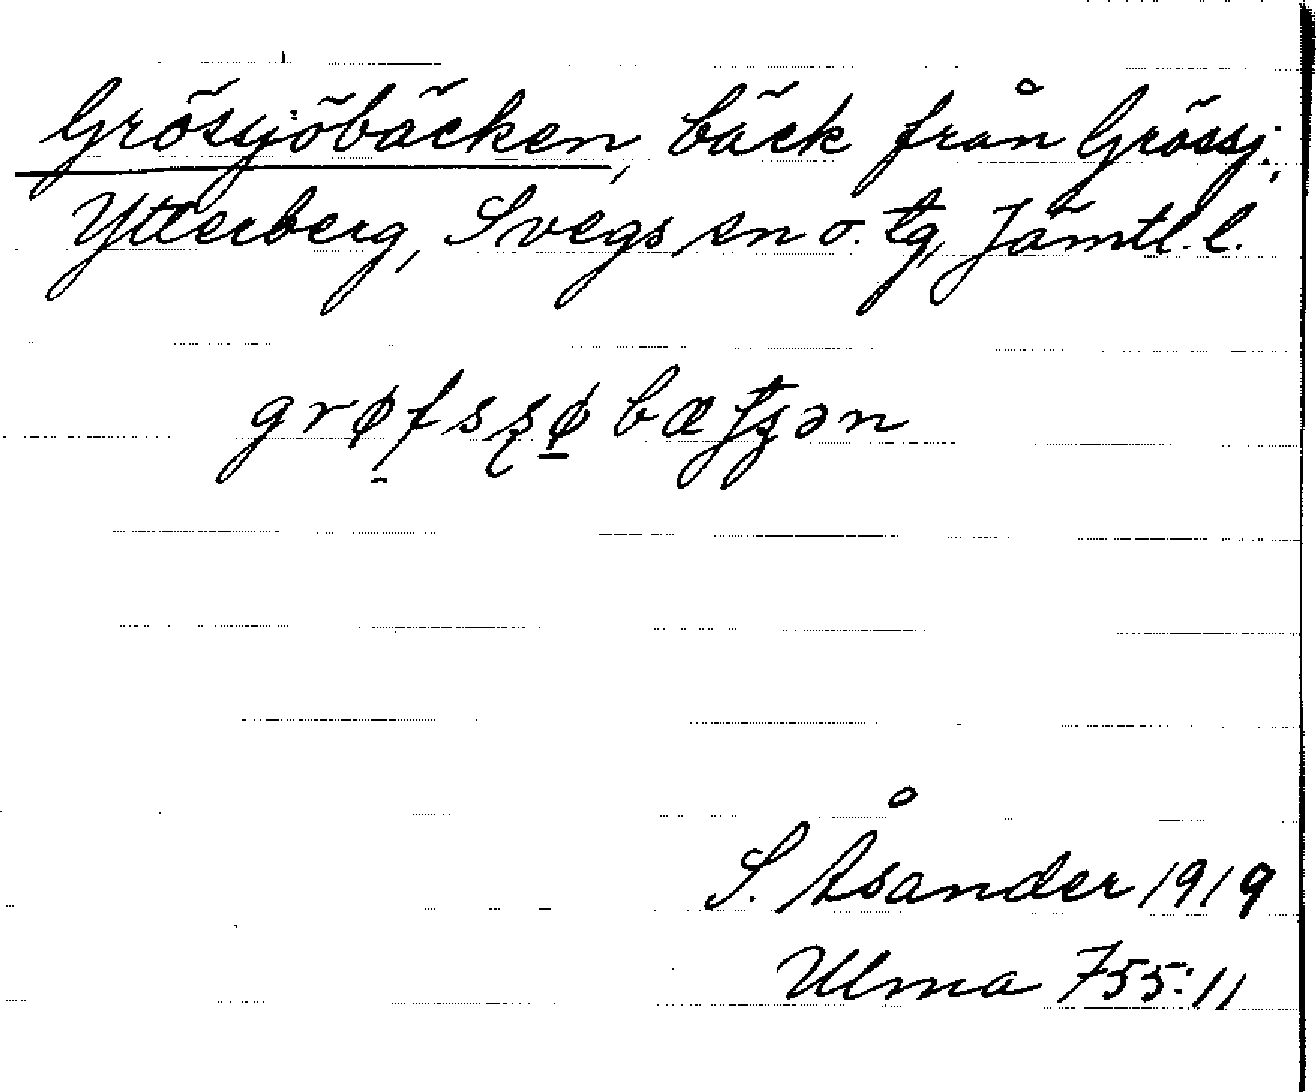 Grösjöbäcken, bäck från Grössj.,
Ytterberg, Svegs sn o. tg, Jämtl. l.
S. Åsander 1919
Ulma 755:11